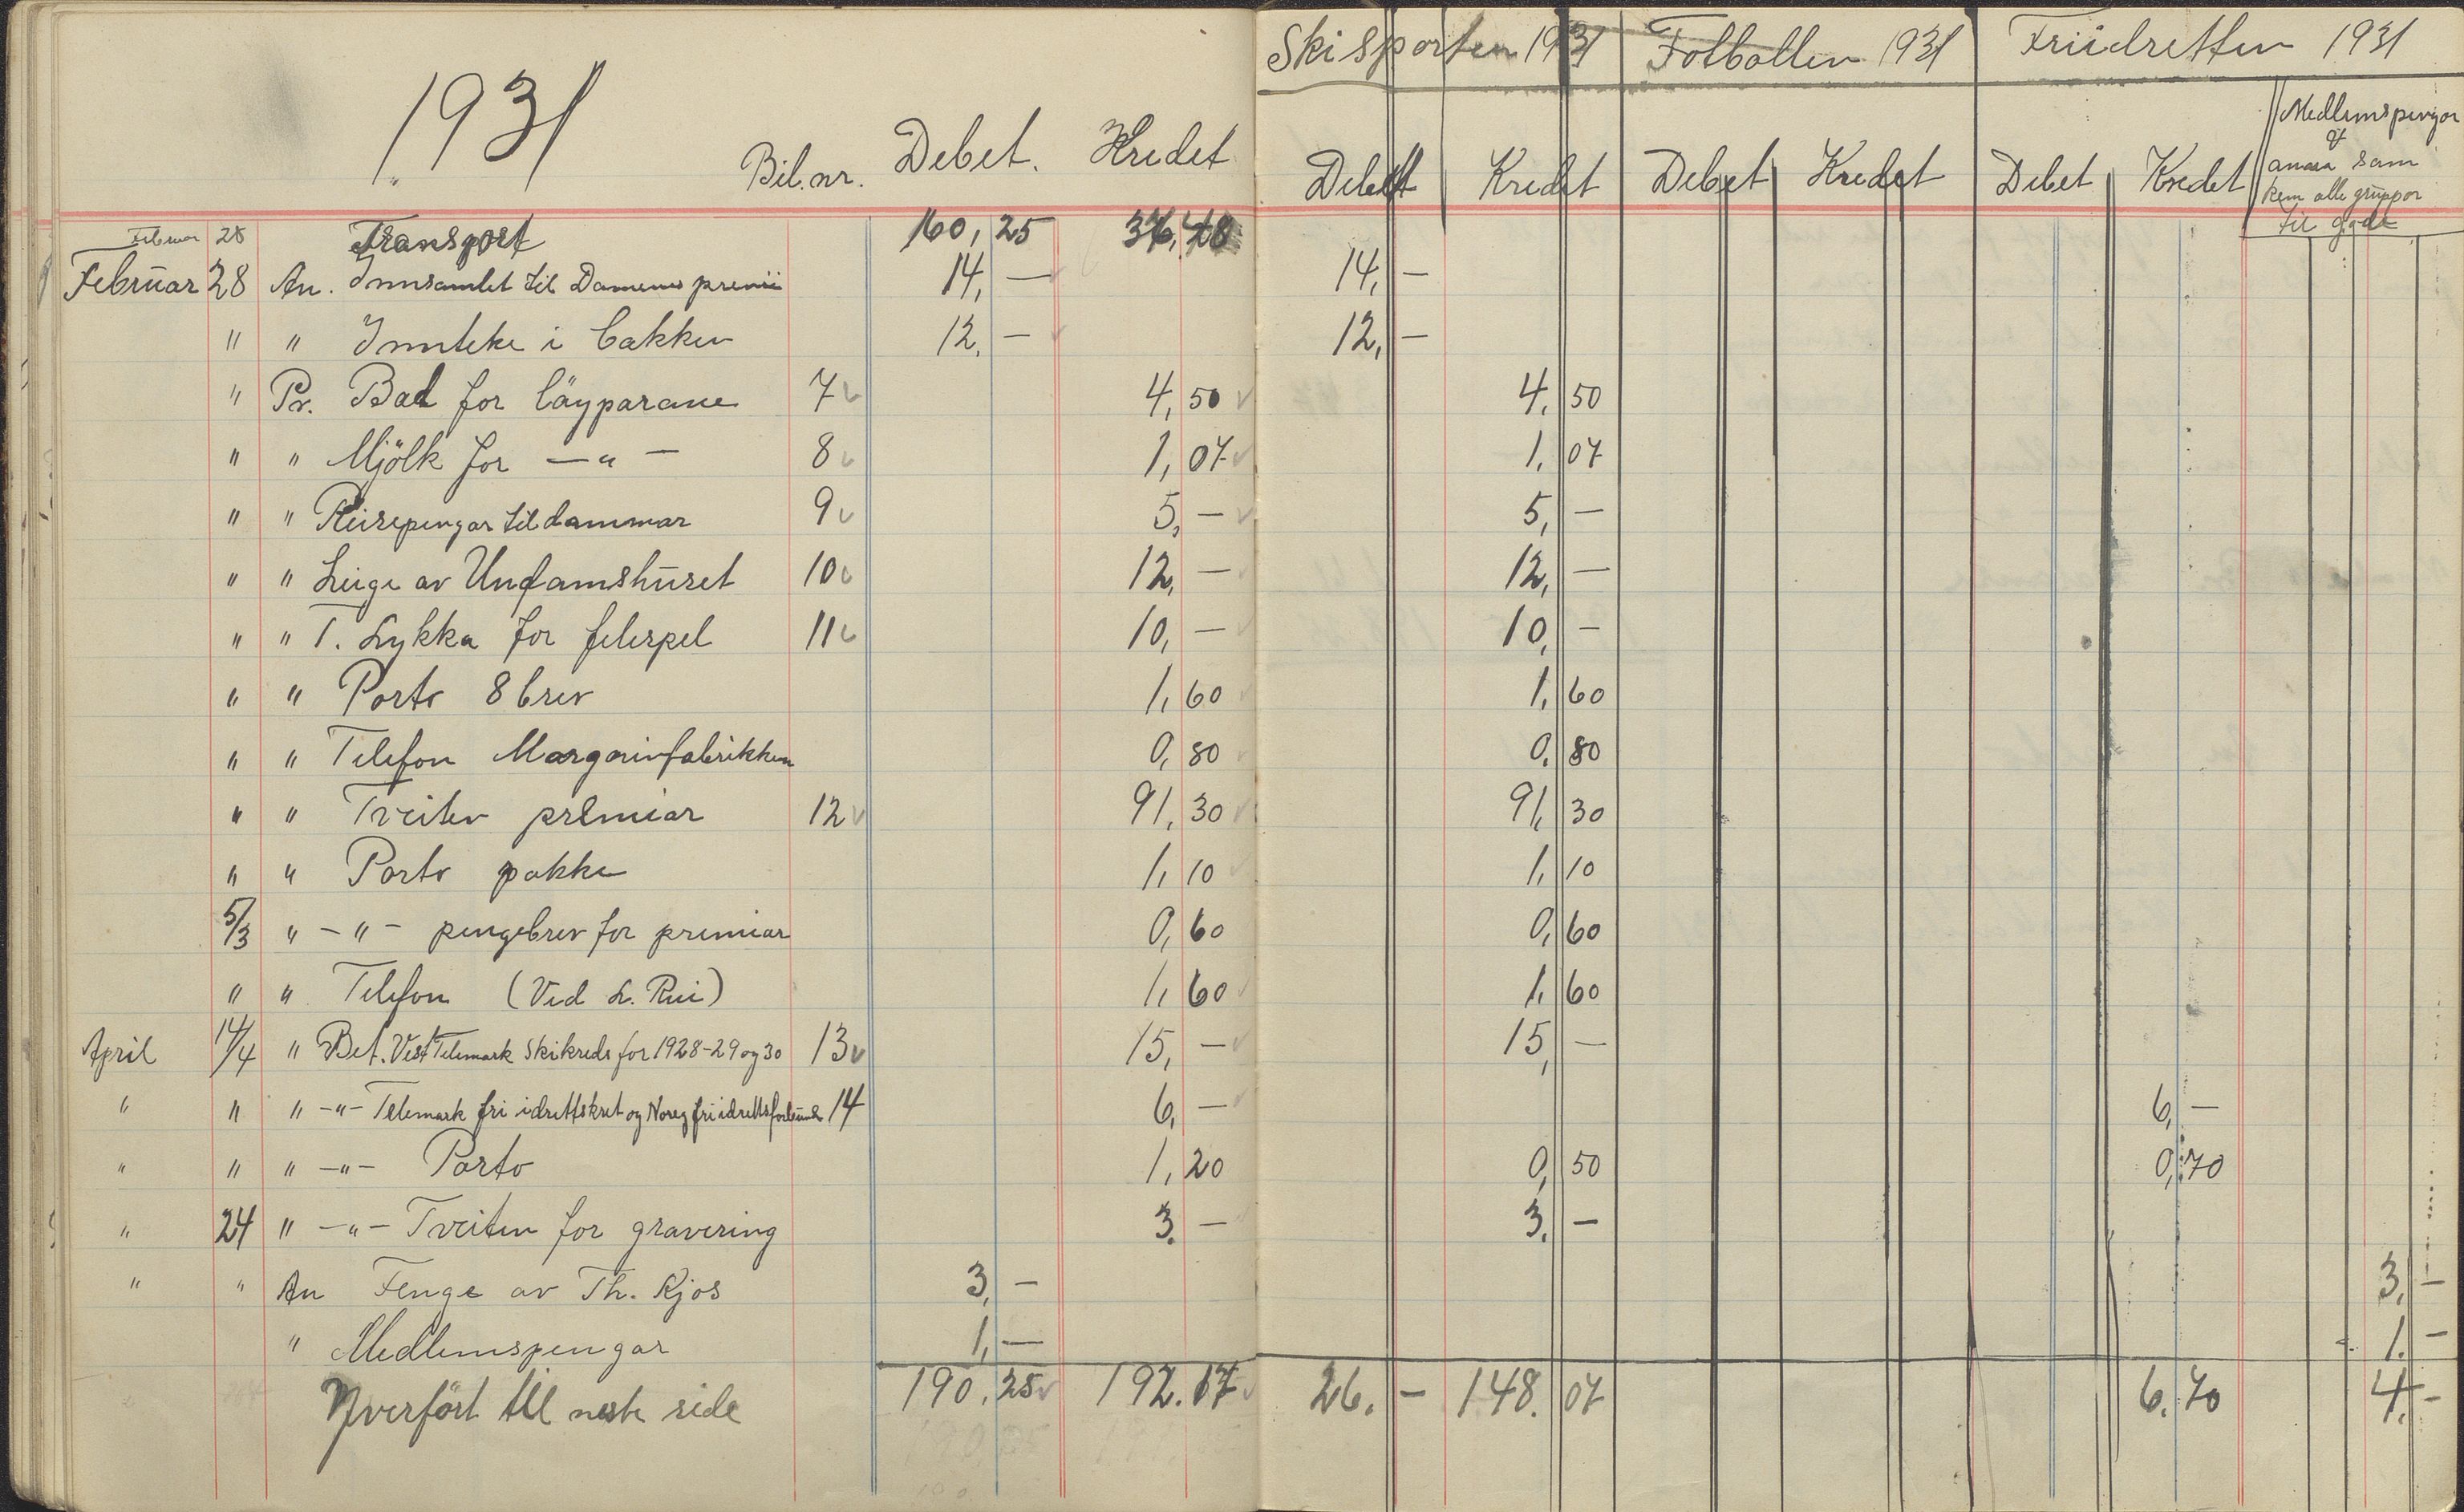 Skisporten 1931 Fotballen 1931 Friidretten 1931
1931
Bil.nr. Debet. Kredet Debet Kredet Debet Kredet Debet Kredet Medlemspengar
og
anna sam
kem alle gruppor
til gode
Februar 28 Transport 160, 25
Februar 28 An. Innsamlet til Damenes premii 14, — 14, —
" " Innteke i bakken 12, — 12, —
" Pr. Bad for läyparane 7 4, 50 4, 50
" " Mjölk for — " — 8 1, 07 1, 07
" " Reisepengar til dammar 9 5, — 5, —
" " Leige av Ungdamshuset 10 12, — 12, —
" " T. Lykka for felespel 11 10, — 10, —
" " Porto 8 brev 1, 60 1, 60
" " Telefon Margarinfabrikken 0, 80 0, 80
" " Tveiten premiar 12 91, 30 91, 30
" " Porto pakke 1, 10 1, 10
5/3 " — " — pengebrev for premiar 0, 60 0, 60
" " Telefon (Ved L. Rui) 1, 60 1, 60
April 14/4 " Bet. Vest Telemark Skikreds for 1928-29 og 30 13 15, — 15, —
" " " — " — Telemark fri idrettskret og Noreg friidrettsforbund 14 6, — 6, —
" " " — " — Porto 1, 20 0, 50 0, 70
" 24 " — " — Tveiten for gravering 3. — 3. —
" " An Fenge av Th. Kjos 3, — 3, —
" Medlemspengar 1, — 1. —
Yverfört til neste side 190, 25 192. 17 26. — 148. 07 6. 70 4. —